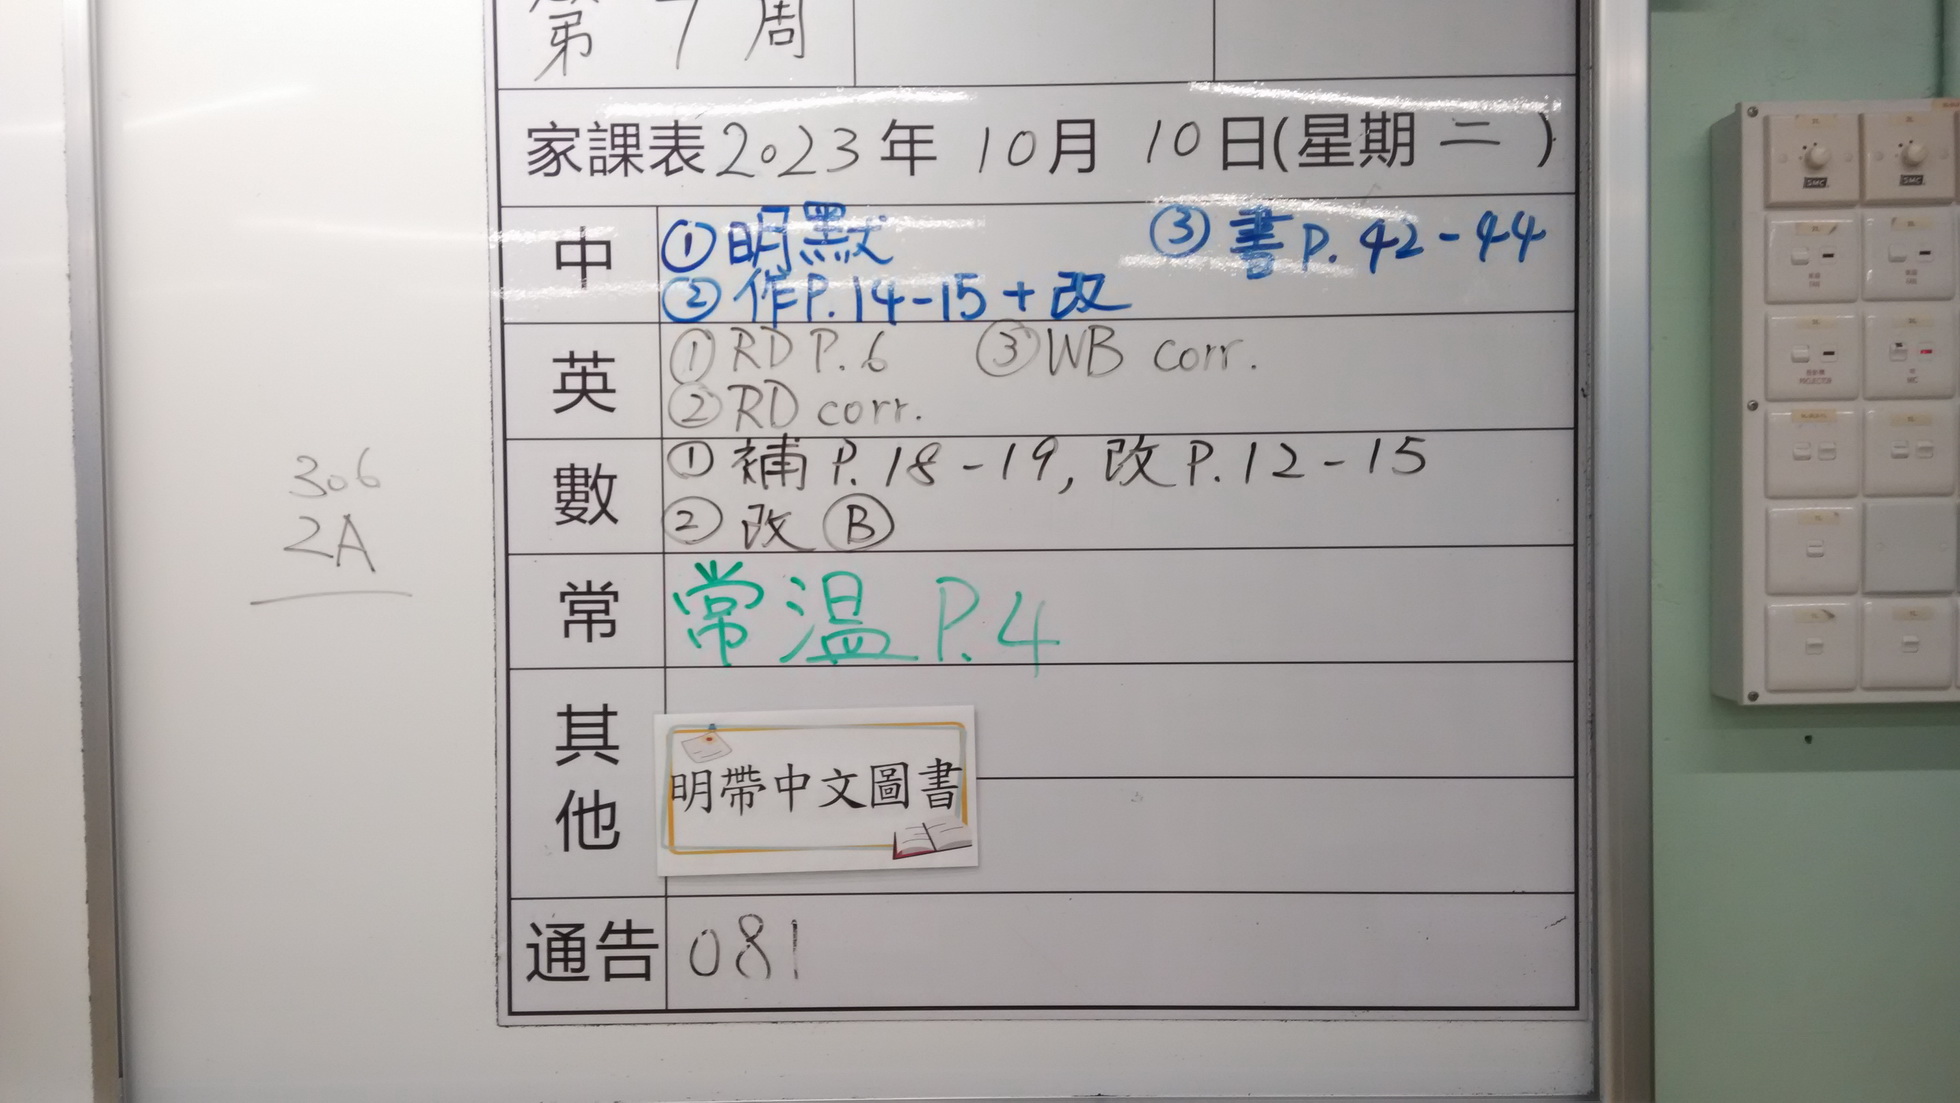 第 7 周
家課表2023年 10月 10日(星期 二 )
中 ①明默 ③書P.42-44
②作P.14-15+改
英 ①RD P.6 ③WB corr.
②RD corr.
數 ①補P.18-19,改P.12-15
②改Ⓑ
常 常溫P.4
其他 明帶中文圖書
通告 081
306
2A
PROJECTOR
SMC
SMC